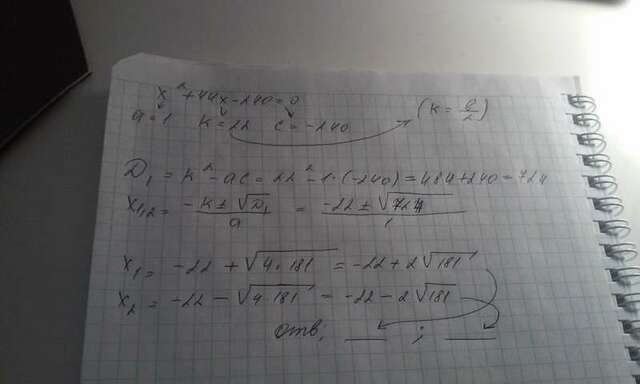 x²+44x-240=0
a=1 k=22 c=-240 (k=b/2)
D₁ = k²-ac = 22²-1·(-240)=484+240=724
x₁,₂ = (-k±√D₁)/a = (-22±√724)/1
x₁ = -22+√(4·181) = -22+2√181
x₂ = -22-√(4·181) = -22-2√181
отв: ___ ; ___